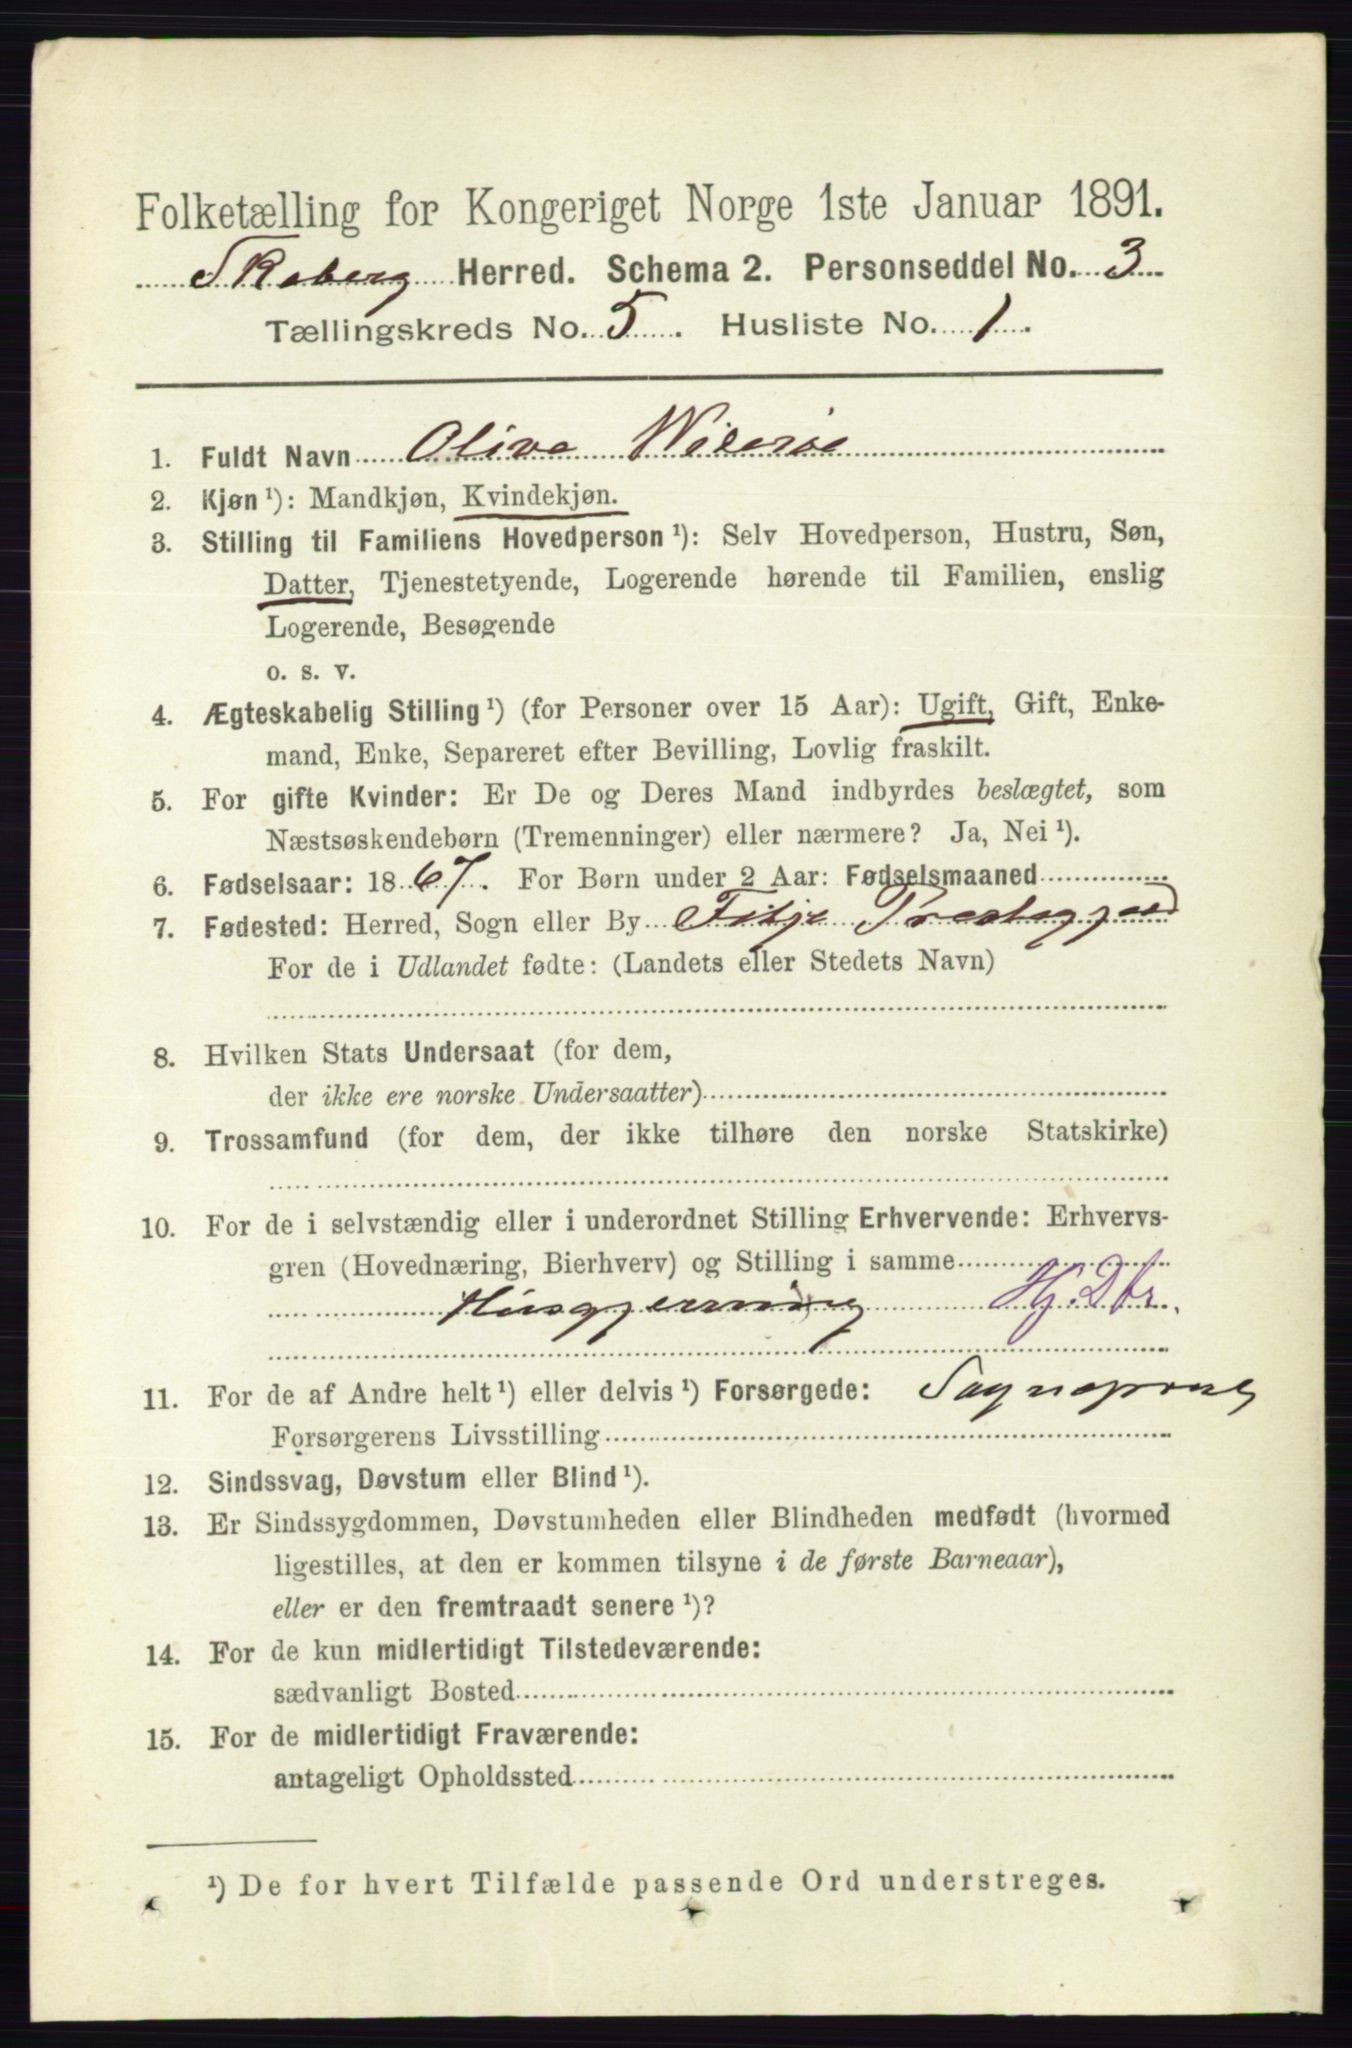 Folketælling for Kongeriget Norge 1ste Januar 1891.
Skeberg Herred. Schema 2. Personseddel No. 3
Tællingskreds No. 5. Husliste No. 1.
1. Fuldt Navn Oliva
2. Kjøn ¹): Mandkjøn, Kvindekjøn.
3. Stilling til Familiens Hovedperson ¹): Selv Hovedperson, Hustru, Søn,
Datter, Tjenestetyende, Logerende hørende til Familien, enslig
Logerende, Besøgende
o. s. v.
4. Ægteskabelig Stilling ¹) (for Personer over 15 Aar): Ugift, Gift, Enke-
mand, Enke, Separeret efter Bevilling, Lovlig fraskilt.
5. For gifte Kvinder: Er De og Deres Mand indbyrdes beslægtet, som
Næstsøskendebørn (Tremenninger) eller nærmere? Ja, Nei ¹).
6. Fødselsaar: 1867. For Børn under 2 Aar: Fødselsmaaned
7. Fødested: Herred, Sogn eller By Fitje Prestegjæld
For de i Udlandet fødte: (Landets eller Stedets Navn)
8. Hvilken Stats Undersaat (for dem,
der ikke ere norske Undersaatter)
9. Trossamfund (for dem, der ikke tilhøre den norske Statskirke)
10. For de i selvstændig eller i underordnet Stilling Erhvervende: Erhvervs-
gren (Hovednæring, Bierhverv) og Stilling i samme
Husgjerning Hj. Dtr.
11. For de af Andre helt ¹) eller delvis ¹) Forsørgede: Sogneprest
Forsørgerens Livsstilling
12. Sindssvag, Døvstum eller Blind ¹).
13. Er Sindssygdommen, Døvstumheden eller Blindheden medfødt (hvormed
ligestilles, at den er kommen tilsyne i de første Barneaar),
eller er den fremtraadt senere ¹)?
14. For de kun midlertidigt Tilstedeværende:
sædvanligt Bosted
15. For de midlertidigt Fraværende:
antageligt Opholdssted
¹) De for hvert Tilfælde passende Ord understreges.